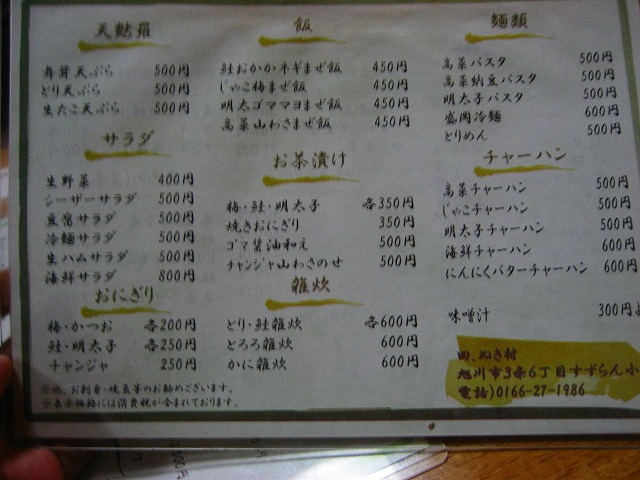 天麩羅
舞茸天ぷら 500円
ぎり天ぷら 500円
生たこ天ぷら 500円
サラダ
生野菜 400円
シーザーサラダ 500円
豆腐サラダ 500円
冷麺サラダ 500円
生ハムサラダ 500円
海鮮サラダ 800円
おにぎり
梅・かつお 各200円
鮭・明太子 各250円
チャンジャ 250円
※他、お刺身・焼魚等のお勧めございます。
※表示価格には消費税が含まれております。
飯
鮭おかかネギまぜ飯 450円
じゃこ梅まぜ飯 450円
明太ゴママヨまぜ飯 450円
高菜山わさまぜ飯 450円
お茶漬け
梅・鮭・明太子 各350円
焼きおにぎり 350円
ゴマ醤油和え 500円
チャンジャ山わさのせ 500円
雑炊
とり・鮭雑炊 各600円
とろろ雑炊 600円
かに雑炊 600円
麺類
高菜パスタ 500円
高菜納豆パスタ 500円
明太子パスタ 500円
盛岡冷麺 600円
とりめん 500円
チャーハン
高菜チャーハン 500円
じゃこチャーハン 500円
明太子チャーハン 500円
海鮮チャーハン 600円
にんにくバターチャーハン 600円
味噌汁 300円よ
田、ぬき村
旭川市3条6丁目すずらん小
電話)0166-27-1986